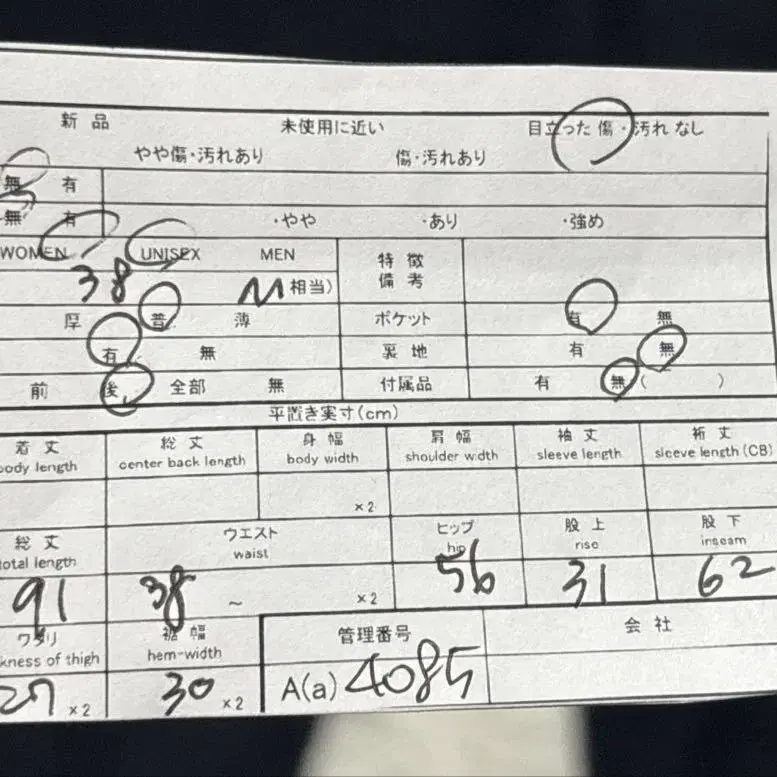 新品 未使用に近い 目立った傷・汚れなし
やや傷・汚れあり 傷・汚れあり
無 有
無 有 ・やや ・あり ・強め
WOMEN UNISEX MEN 特徴
38 M 相当) 備考
厚 普 薄 ポケット 有 無
有 無 裏地 有 無
前 後 全部 無 付属品 有 無( )
平置き実寸(cm)
着丈 総丈 身幅 肩幅 袖丈 裄丈
body length center back length body width shoulder width sleeve length sleeve length (CB)
×2
総丈 ウエスト ヒップ 股上 股下
total length waist hip rise inseam
91 38 ~ ×2 56 31 62
ワタリ 裾幅 管理番号 会社
kness of thigh hem-width
27 ×2 30 ×2 A(a) 4085